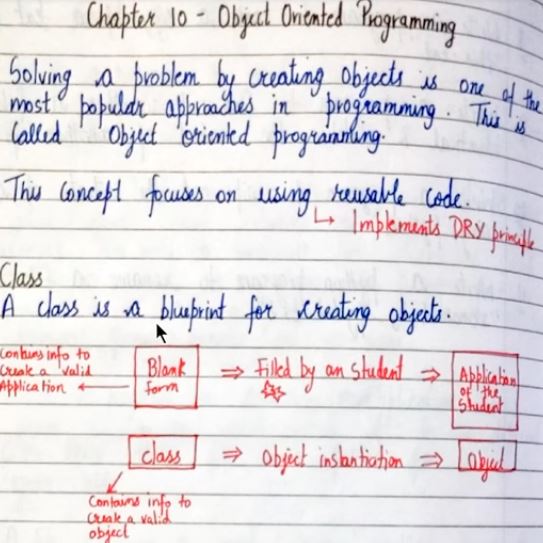 Chapter 10 - Object Oriented Programming
Solving a problem by creating objects is one of the
most popular approaches in programming. This is
called Object oriented programming.
This concept focuses on using reusable code.
↳ Implements DRY principle
Class
A class is a blueprint for creating objects.
Contains info to
create a valid
Application ← Blank
form ⇒ Filled by an Student ⇒ Application
of the
Student
class ⇒ Object instantiation ⇒ Object
Contains info to
create a valid
object